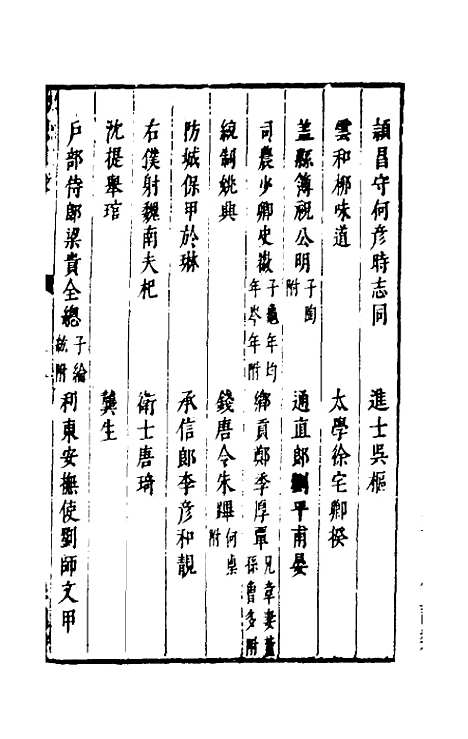 潁昌守何彥時志同　進士吳樞
雲和柳味道　太學徐宅卿揆
蓋縣簿祝公明子陶附　通直郎劉平甫晏
司農少卿史徽子龜年均年岑年附　鄉貢鄭季厚覃兄章妻董孫曹多附
統制姚興　錢唐令朱蹕何㮚附
防城保甲於琳　承信郎李彥和靚
右僕射魏南夫杞　衛士唐琦
沈提舉琯　龔生
戶部侍郎梁貴全總子綸紘附　利東安撫使劉師文甲